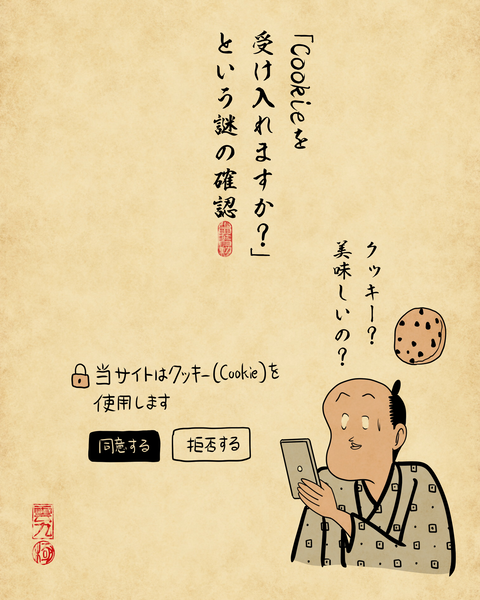 「Cookieを
受け入れますか？」
という謎の確認
クッキー？
美味しいの？
当サイトはクッキー(Cookie)を
使用します
同意する
拒否する